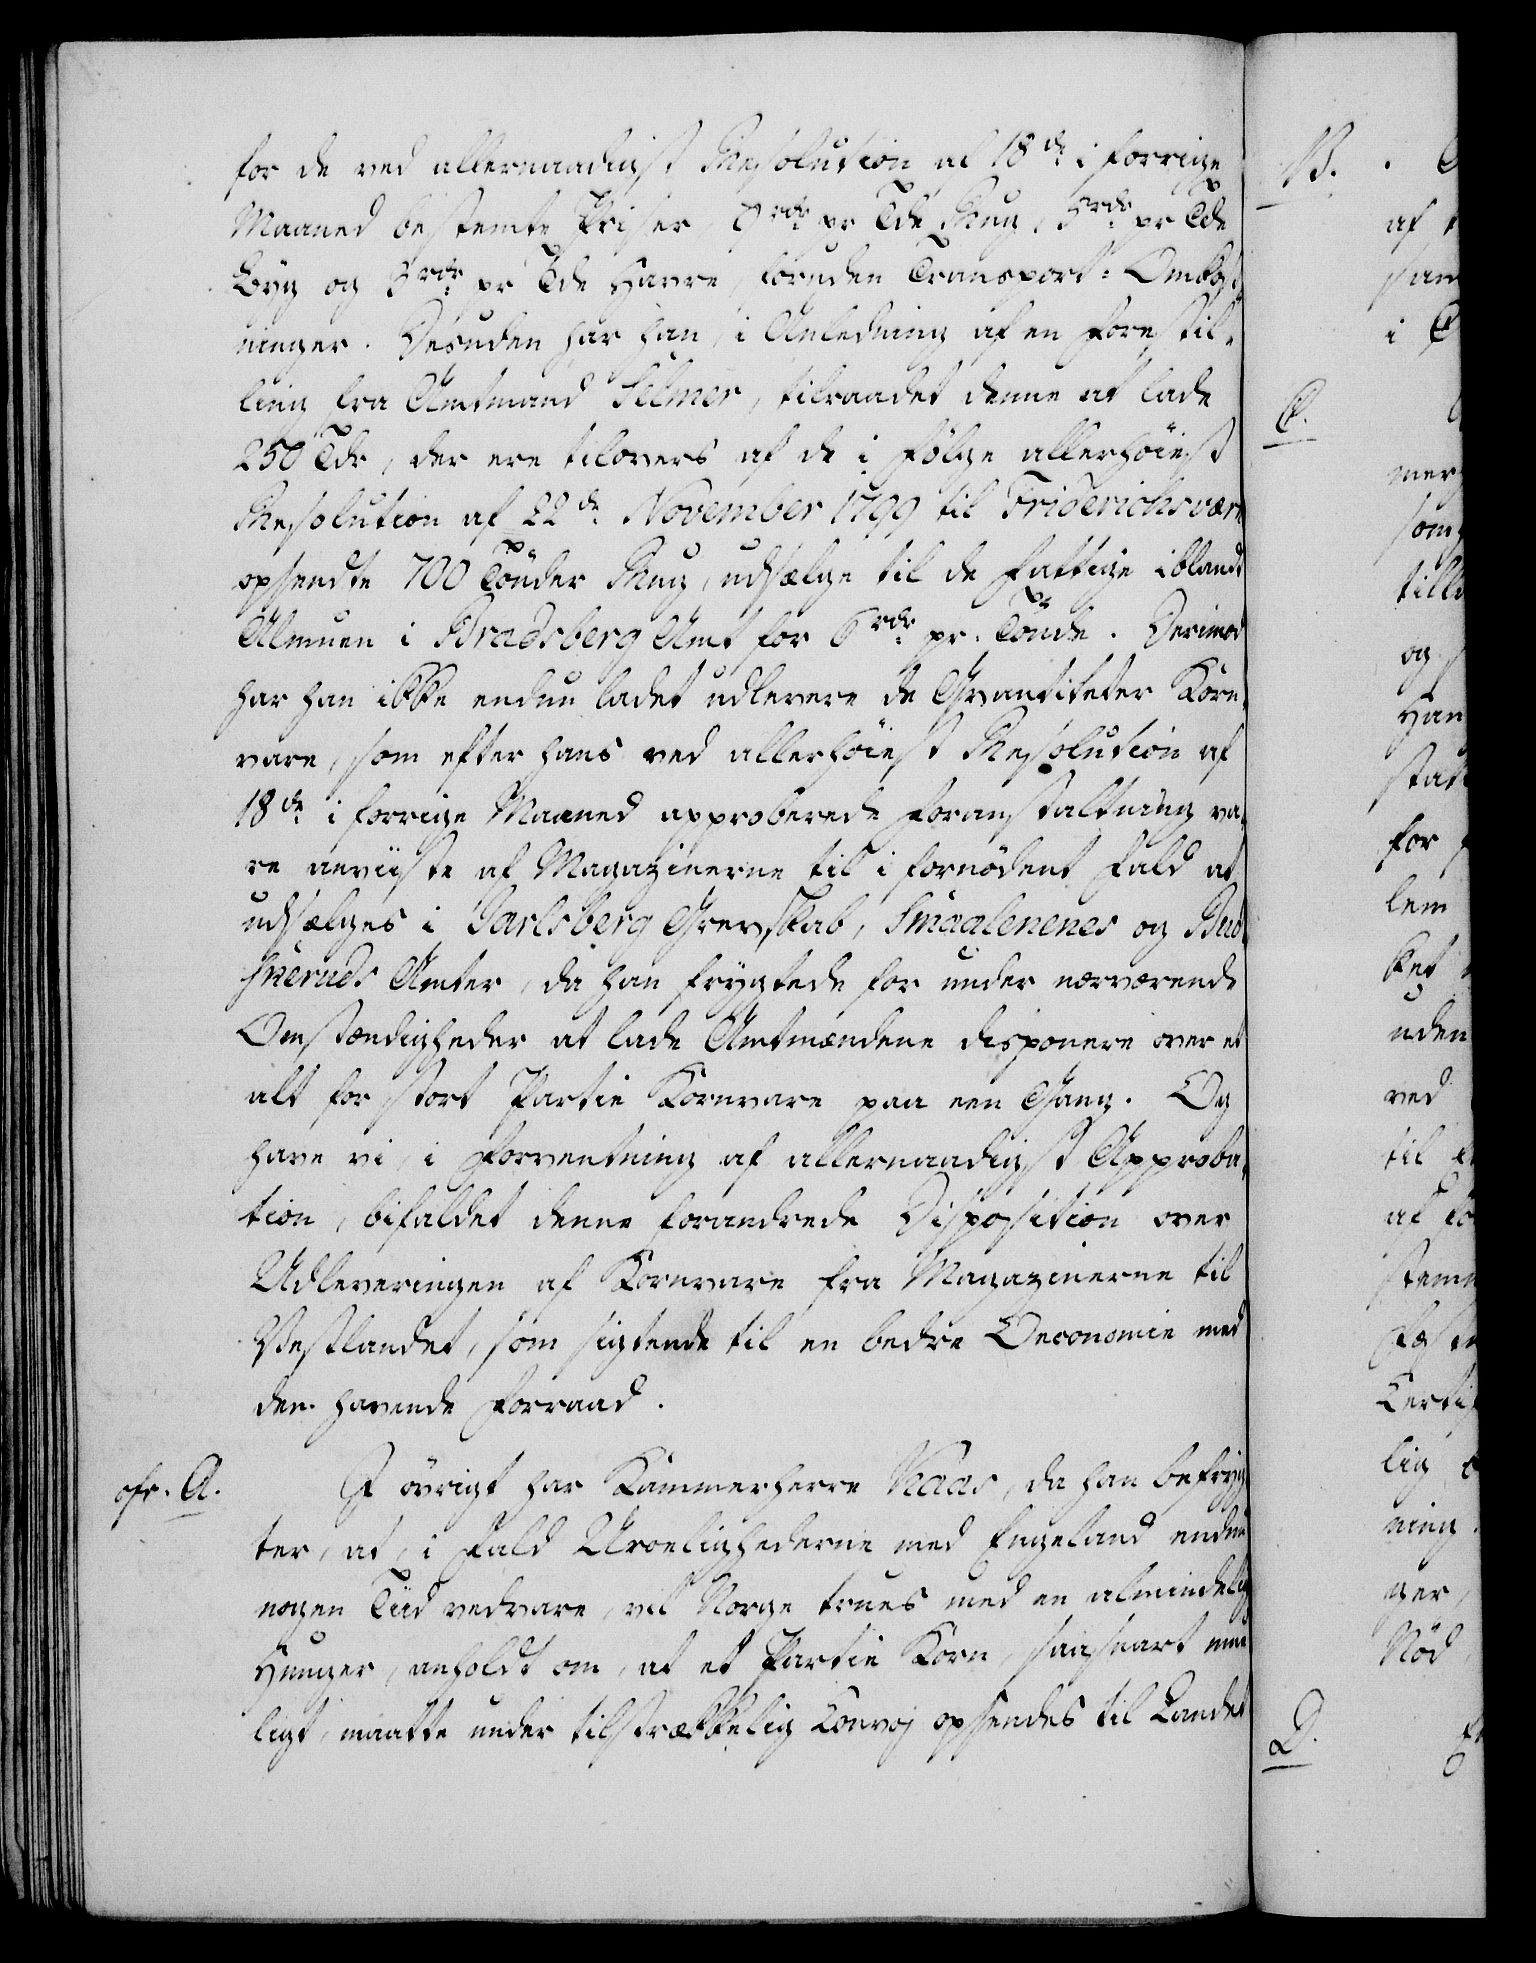 for de ved allernaadigst Resolution af 18de i forrige
Maaned bestemte Priser 7 rdr pr Tde Rug, 5 rdr pr Tde
Byg og 3 rdr pr Tde Havre, foruden Transport-Omkost-
ninger. Desuden har han, i Anledning af en Forestil-
ling fra Amtmand Selmer, tilraadet denne at lade
250 Tdr, der ere tilovers af de i Følge allerhøiest
Resolution af 22de November 1799 til Friderichsværn
opsendte 700 Tönder Rug, udsælge til de Fattige iblandt
Almuen i Bradsberg Amt for 6 rdr pr. Tönde. Derimod
har han ikke endnu ladet udlevere de Qvantiteter Korn-
vare, som efter hans ved allerhøiest Resolution af
18de i forrige Maaned approberede Foranstaltning va-
re anviiste af Magazinerne til i fornödent Fald at
udsælges i Jarlsberg Grevskab, Smaalenenes og Bud-
skeruds Amter, da han frygtede for under nærværende
Omstændigheder at lade Amtmændene disponere over et
alt for stort Partie Kornvare paa een Gang. Og
have vi, i Forventning af allernaadigst Approba-
tion, bifaldet denne forandrede Disposition over
Udleveringen af Kornvare fra Magazinerne til
Vestlandet, som sigtende til en bedre Oeconomie med
den havende Forraad.
cfr. A. I övrigt har Kammerherre Kaas, da han befryg-
ter, at, i Fald Uroelighederne med Engeland endnu
nogen Tiid vedvare, vil Norge trues med en almindelig
Hunger, anholdt om, at et Partie Korn, saasnart mue-
ligt, maatte under tilstrækkelig Convoj opsendes til Landet
B.
af
sam
i
C.
mer
som
till
og
Han
stat
for
lem
ket
uden
ved
til
af
stem
Certi
lig
ning.
ger,
Nød
D.